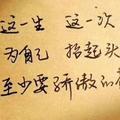 这一生 这一次
为自己 抬起头
至少要骄傲的